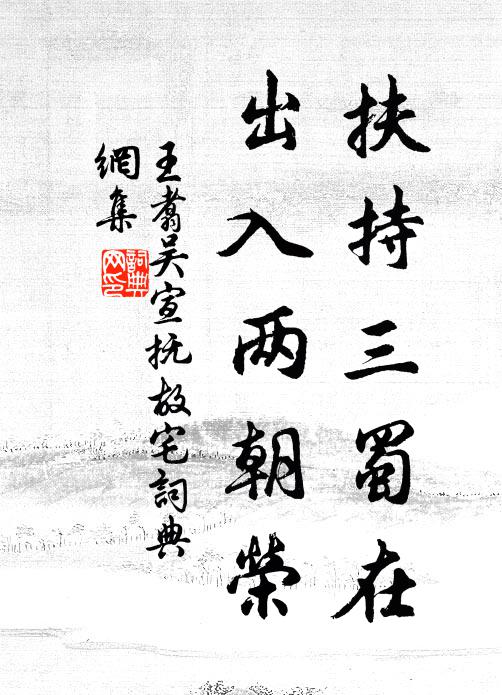 扶持三蜀在
出入两朝榮
王翥吴宣抚故宅詞典
網集
詞典网印